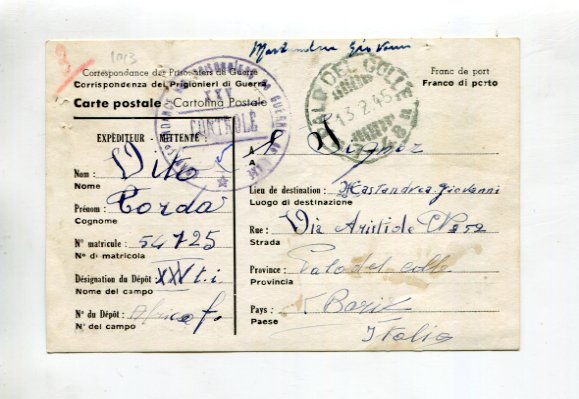 1013
Mastandrea Giovanni
Correspondance des Prisonniers de Guerre
Corrispondenza dei Prigionieri di Guerra
Carte postale - Cartolina Postale
Franc de port
Franco di porto
XXV
CONTROLE
PALO DEL COLLE
13.2.45
EXPÉDITEUR - MITTENTE :
Nom : Vito
Nome
Prénom : Corda
Cognome
N° matricule : 54725
N° di matricola
Désignation du Dépôt : XXV t.i
Nome del campo
N° du Dépôt : Africa f.
N° del campo
A
A
Signor
Lieu de destination : Mastandrea Giovanni
Luogo di destinazione
Rue : Via Aristide N° 252
Strada
Province : Palo del colle
Provincia
Pays : Bari
Paese
Italia